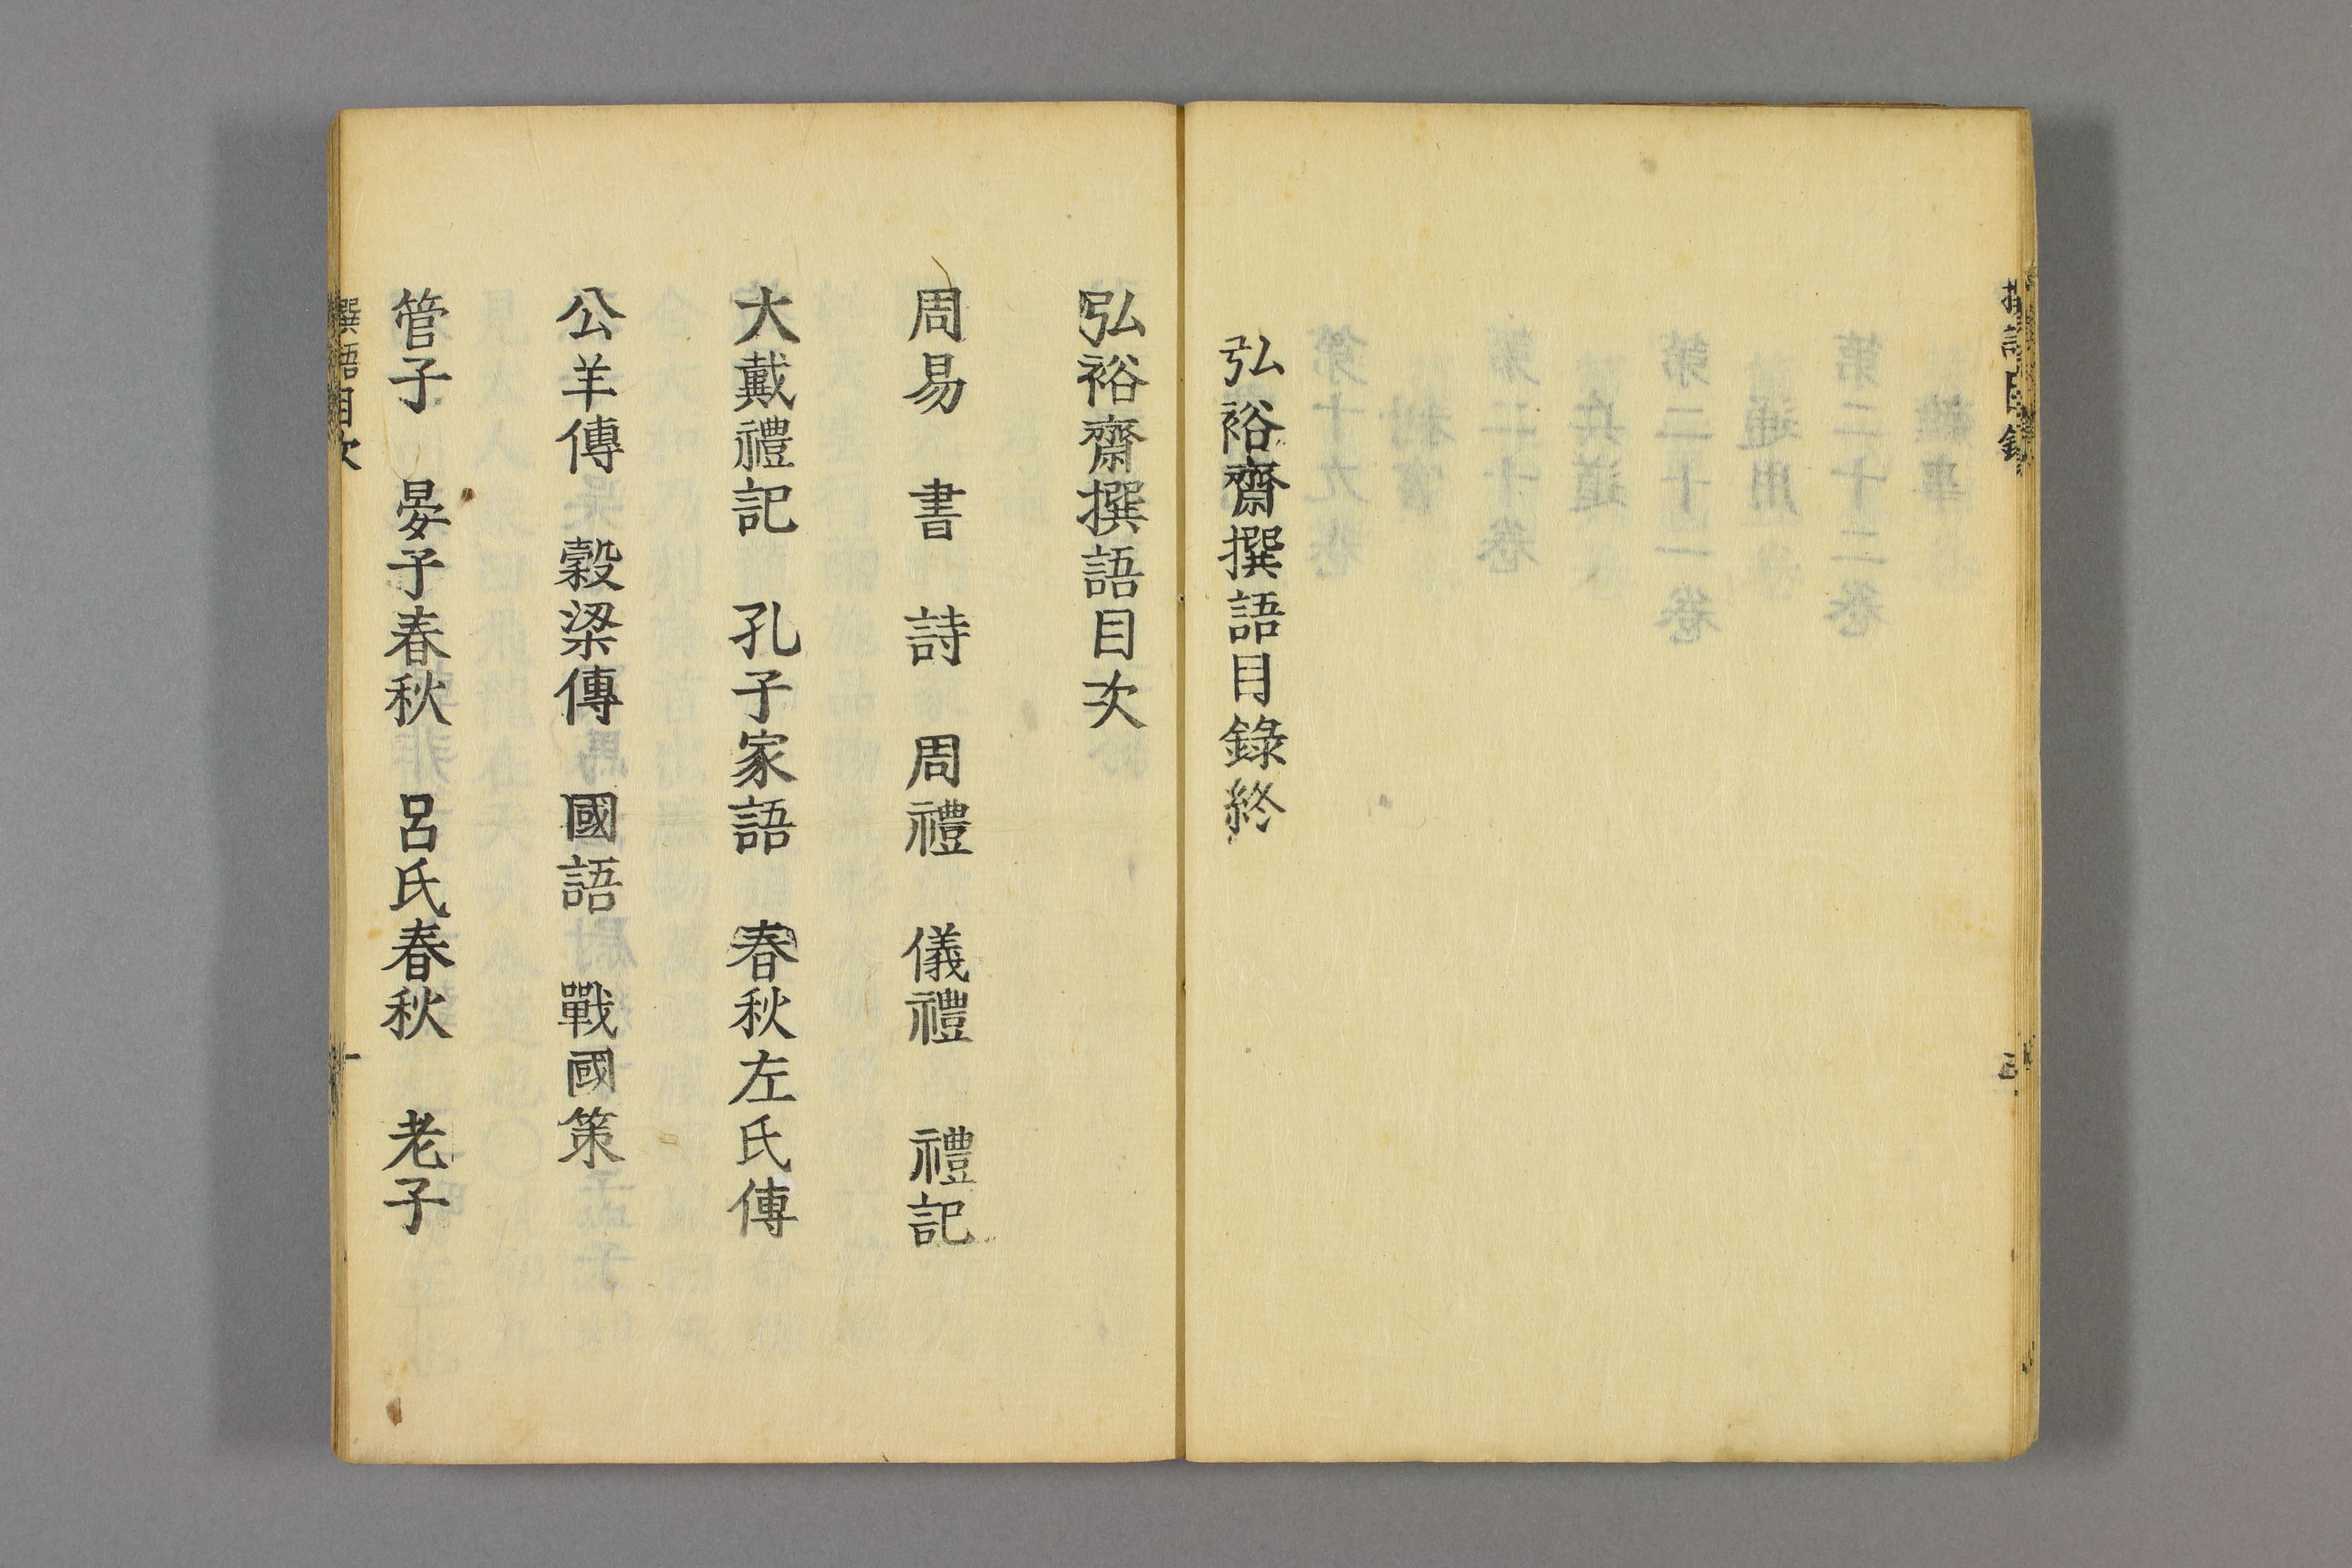 弘裕齋撰語目錄終
弘裕齋撰語目次
周易　書　詩　周禮　儀禮　禮記
大戴禮記　孔子家語　春秋左氏傳
公羊傳　穀梁傳　國語　戰國策
管子　晏子春秋　呂氏春秋　老子
撰語目次　一